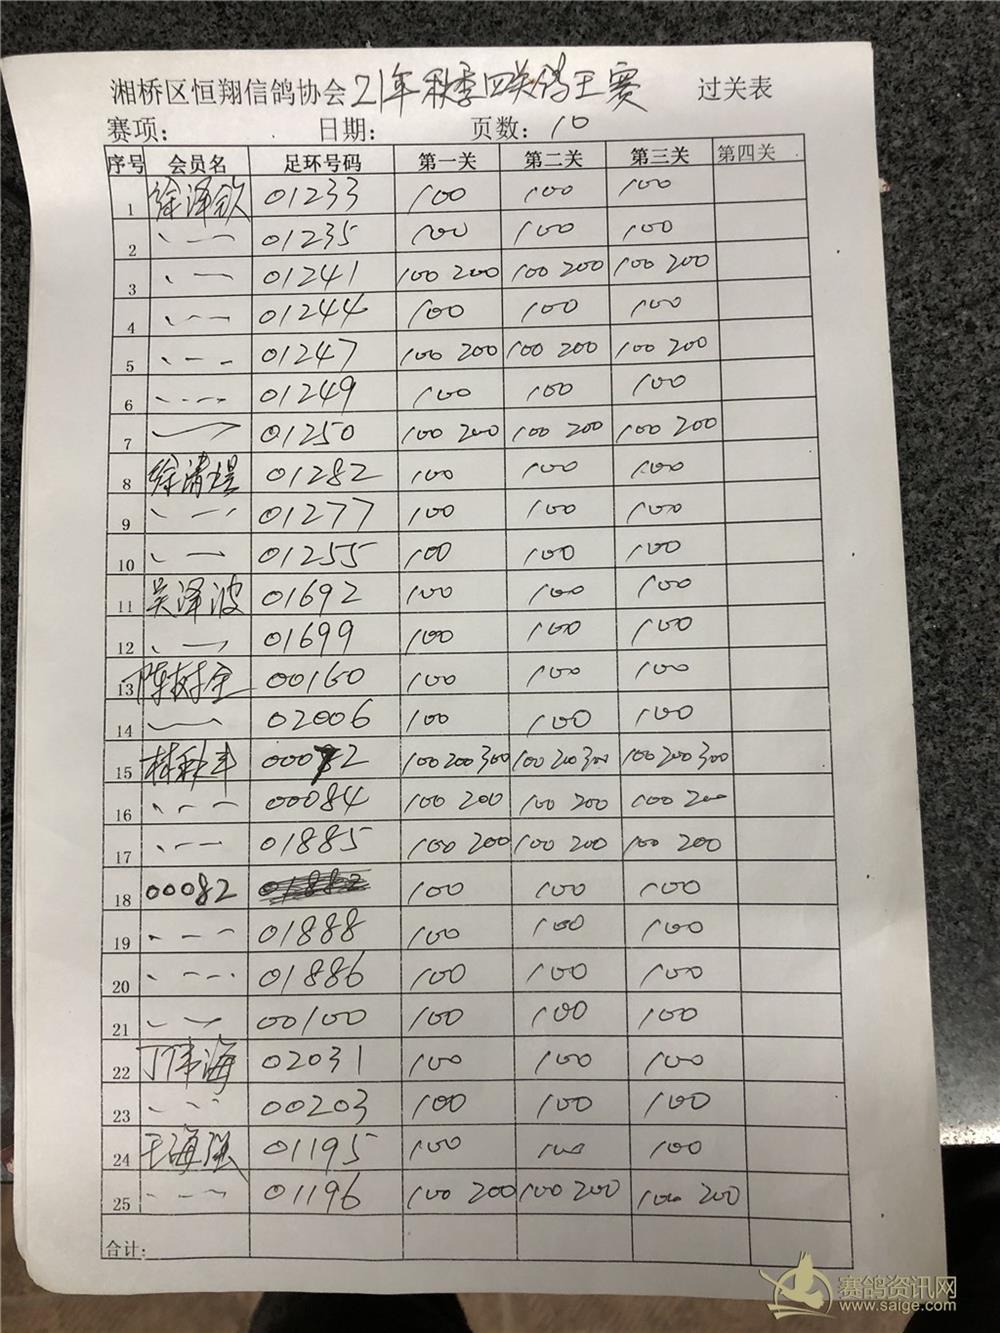 湘桥区恒翔信鸽协会 21年秋季四关鸽王赛 过关表
赛项: 日期: 页数: 10
序号 会员名 足环号码 第一关 第二关 第三关 第四关
1 徐泽欽 01233 100 100 100
2 、一一 01235 100 100 100
3 、一 01241 100 200 100 200 100 200
4 、一一 01244 100 100 100
5 、一一 01247 100 200 100 200 100 200
6 、一一 01249 100 100 100
7 01250 100 200 100 200 100 200
8 徐清煜 01282 100 100 100
9 、一一 01277 100 100 100
10 、一 01255 100 100 100
11 吴泽波 01692 100 100 100
12 、一 01699 100 100 100
13 陈树全 00160 100 100 100
14 、一 02006 100 100 100
15 林秋丰 00072 100 200 300 100 200 300 100 200 300
16 、一一 00084 100 200 100 200 100 200
17 、一一 01885 100 200 100 200 100 200
18 00082 01882 100 100 100
19 、一一 01888 100 100 100
20 、一一 01886 100 100 100
21 、一 00100 100 100 100
22 丁伟海 02031 100 100 100
23 、一、 00203 100 100 100
24 王海强 01195 100 100 100
25 、一一 01196 100 200 100 200 100 200
合计:
赛鸽资讯网
www.saige.com